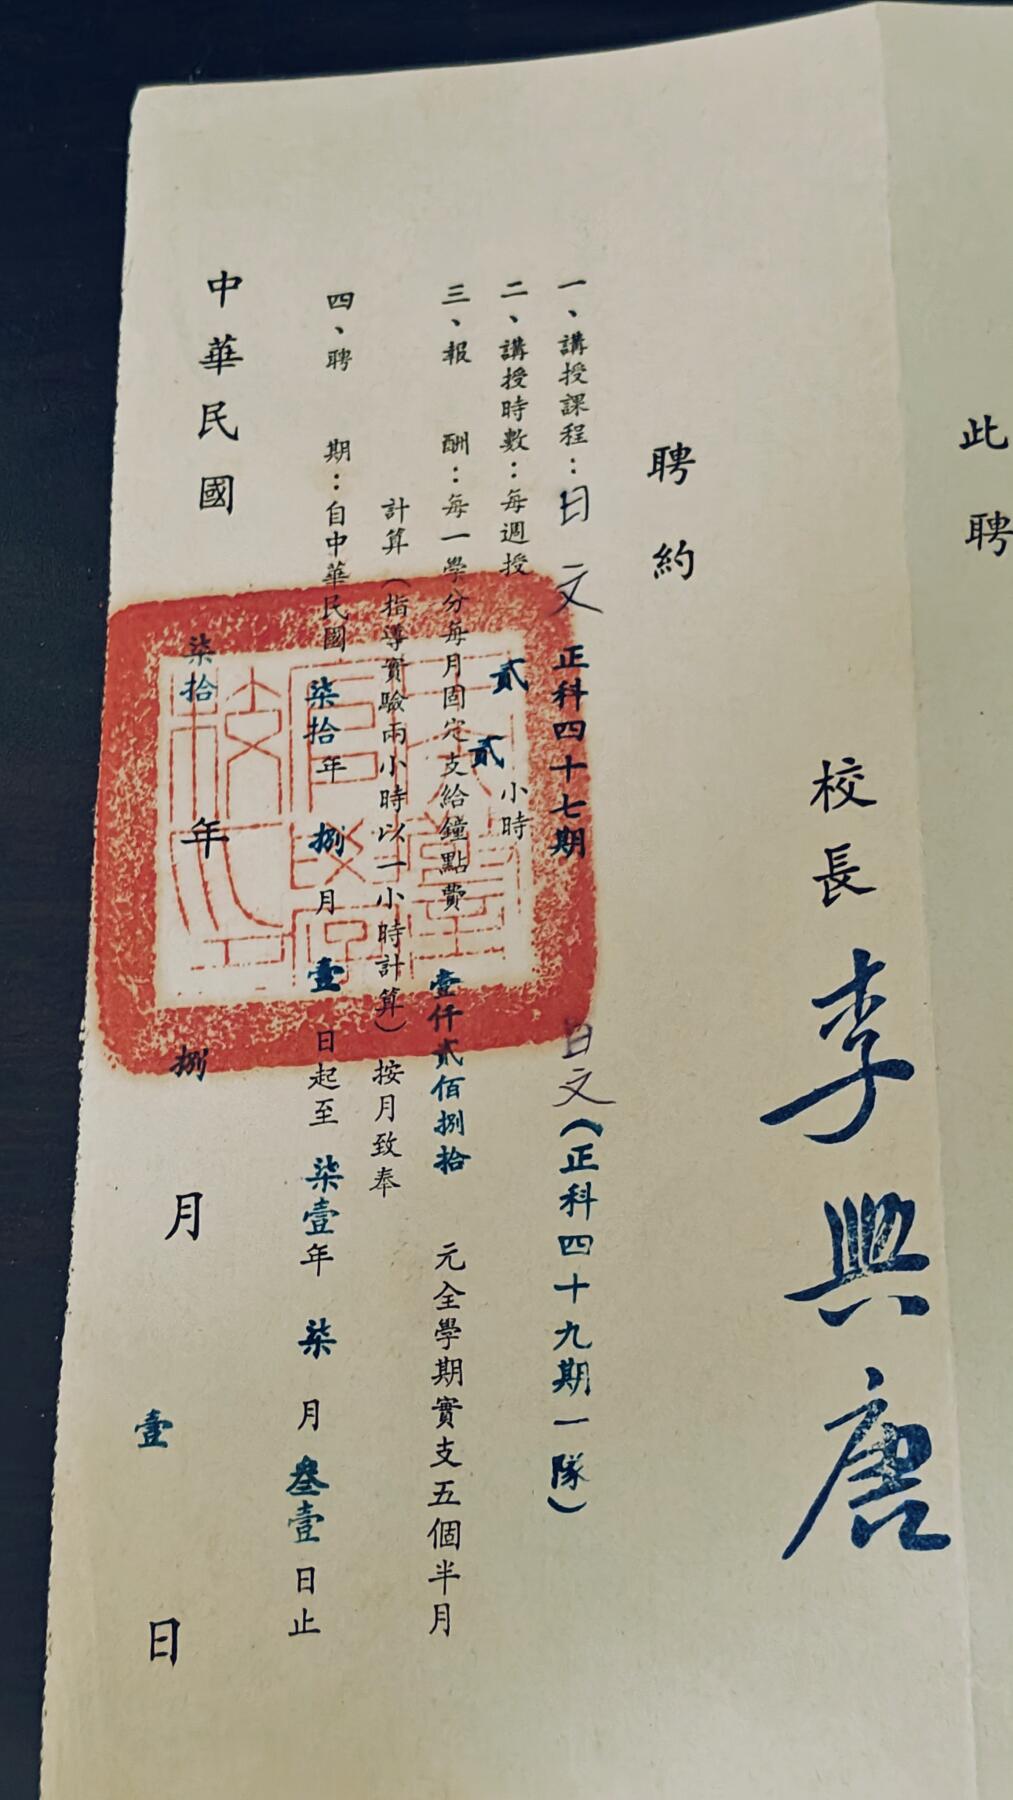 此聘
校長 李興唐
聘約
一、講授課程：日文 正科四十七期 日文(正科四十九期一隊)
二、講授時數：每週授 貳 貳 小時
三、報酬：每一學分每月固定支給鐘點費 壹仟貳佰捌拾 元全學期實支五個半月
計算(指導實驗兩小時以一小時計算)按月致奉
四、聘期：自中華民國 柒拾年 捌月 壹日起至 柒壹年 柒月 叁壹日止
中華民國 柒拾年 捌月 壹日